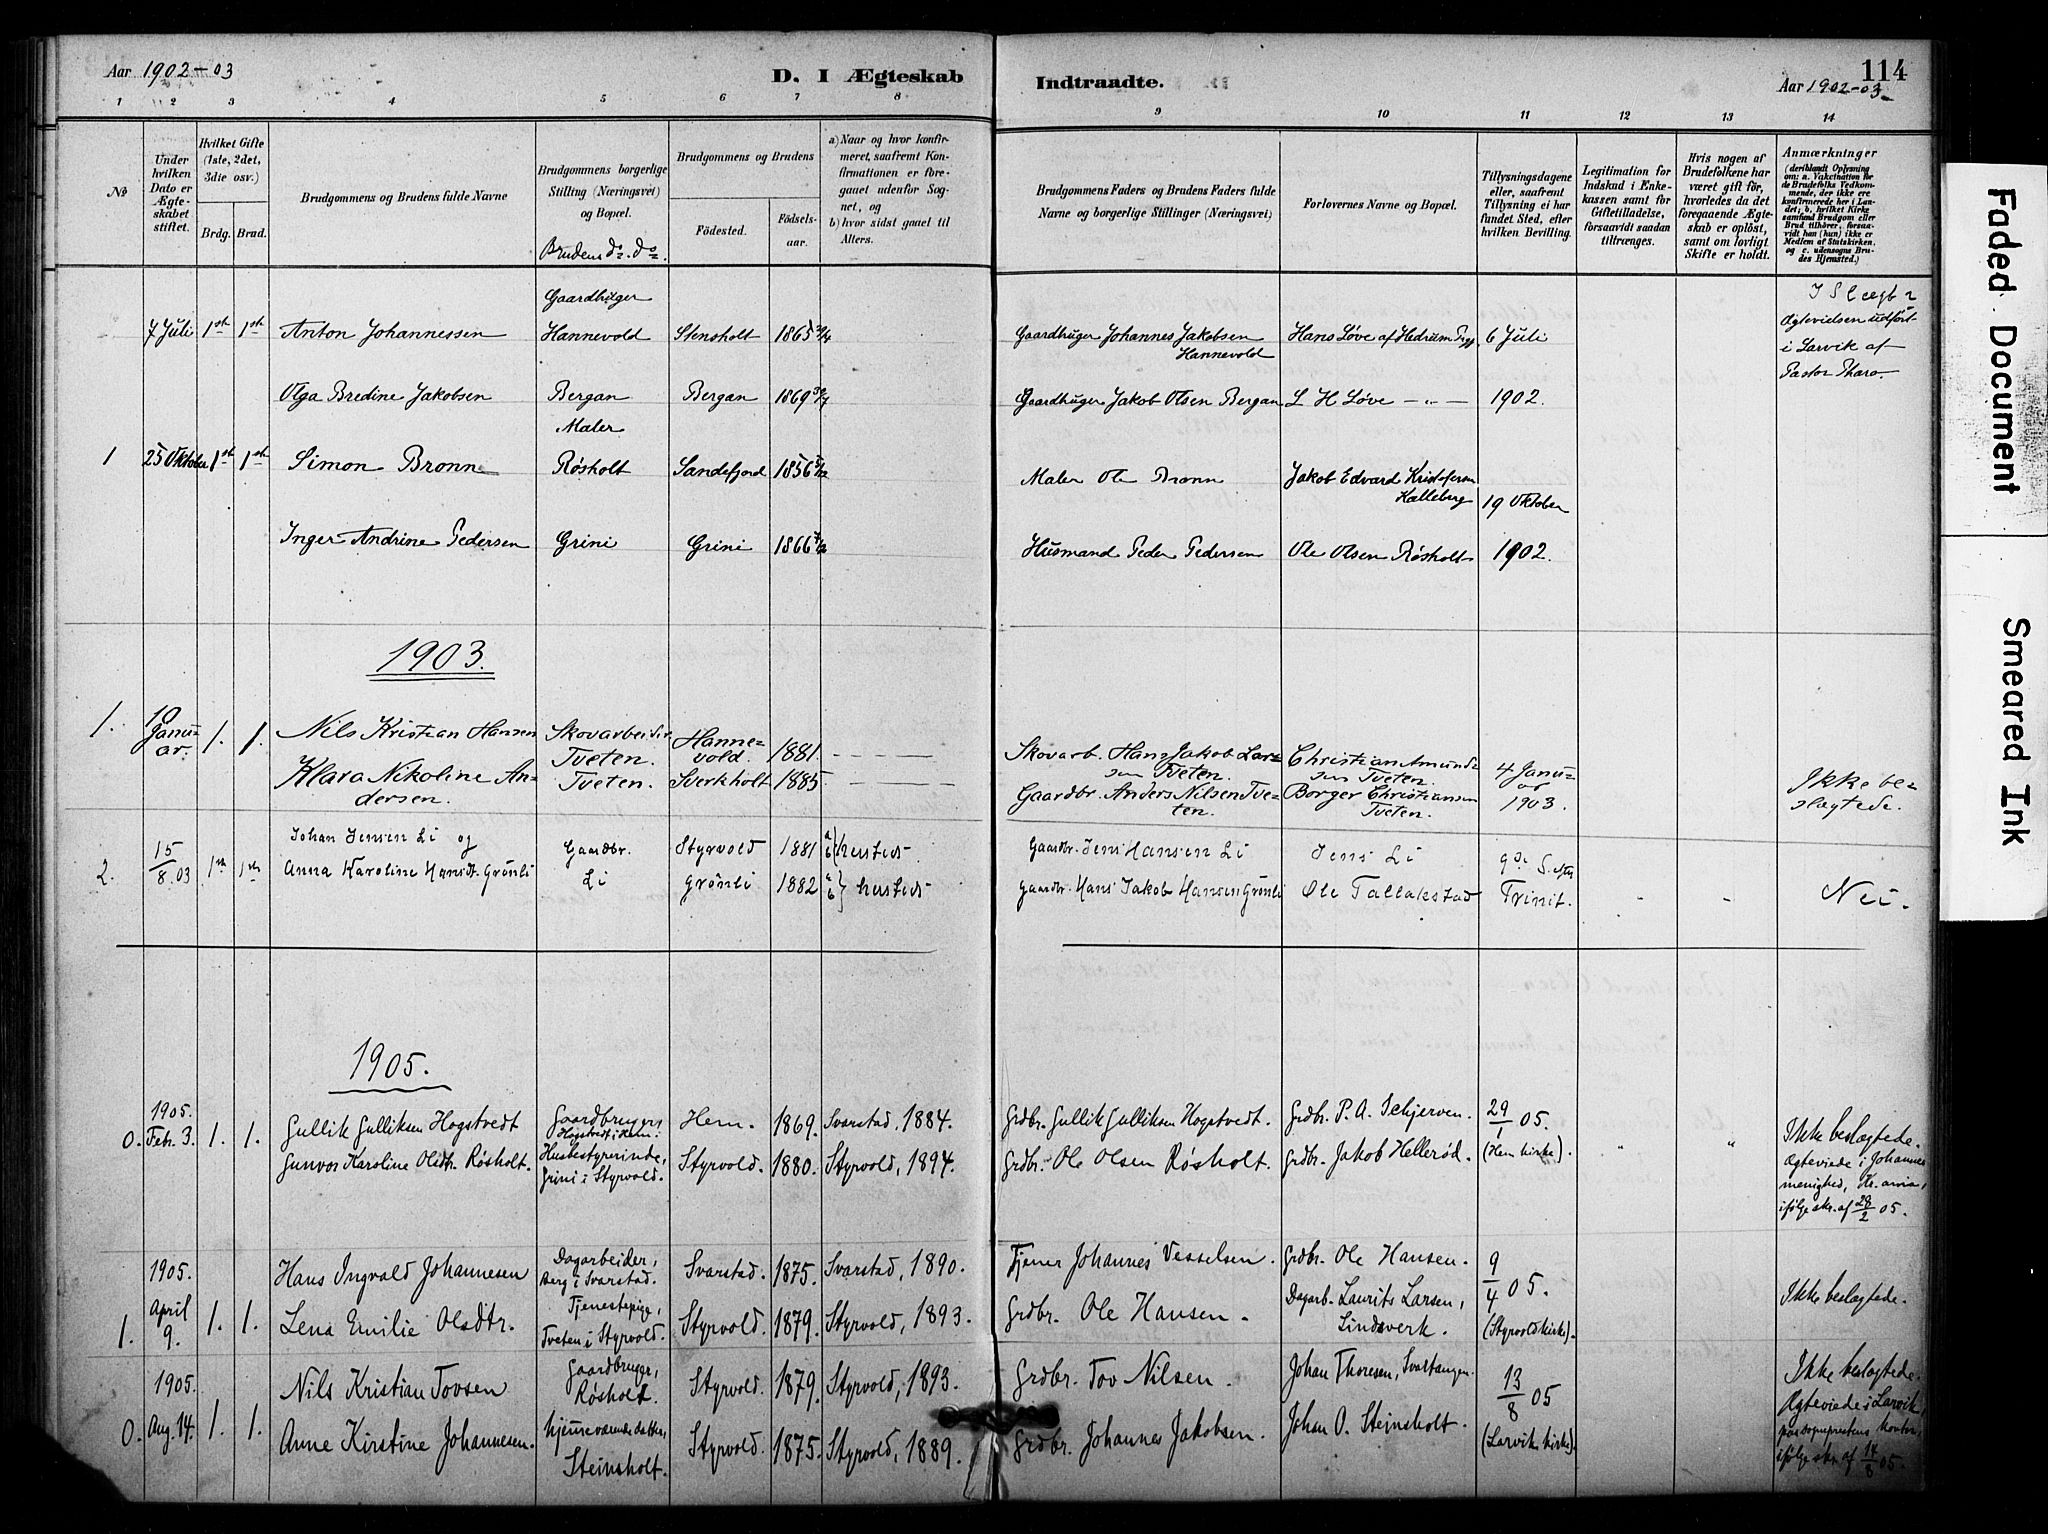 Aar 1902-03
D. I Ægteskab
Indtraadte.
114
Aar 1902-03
1 2 3 4 5 6 7 8 9 10 11 12 13 14
No
Under hvilken Dato er Ægteskabet stiftet.
Hvilket Gifte (1ste, 2det, 3die osv.)
Brdg. Brud.
Brudgommens og Brudens fulde Navne
Brudgommens borgerlige Stilling (Næringsvei) og Bopæl.
Brudens do. do.
Brudgommens og Brudens
Födested.
Födsels-aar.
a) Naar og hvor konfirmeret, saafremt Konfirmationen er foregaaet udenfor Sognet, og
b) hvor sidst gaaet til Alters.
Brudgommens Faders og Brudens Faders fulde Navne og borgerlige Stillinger (Næringsvei)
Forlovernes Navne og Bopæl.
Tillysningsdagene eller, saafremt Tillysning ei har fundet Sted, efter hvilken Bevilling.
Legitimation for Indskud i Enkekassen samt for Giftetilladelse, forsaavidt saadan tiltrænges.
Hvis nogen af Brudefolkene har været gift før, hvorledes da det foregaaende Ægteskab er oplöst, samt om lovligt Skifte er holdt.
Anmærkninger
(deriblandt Oplysning om: a. Vaksination for de Brudefolks Vedkommende, der ikke ere konfirmerede her i Landet; b. hvilket Kirkesamfund Brudgom eller Brud tilhörer, forsaavidt han (hun) ikke er Medlem af Statskirken, og c. udensogns Brudes Hjemsted.)
7 Juli 1st 1st Anton Johannessen Gaardbruger Hannevold Stensholt 1865 Gaardbruger Johannes Jakobsen Hannevold Hans Løve af Hedrum 6 Juli
Ægtevielsen udført i Larvik af Pastor
Olga Bredine Jakobsen Bergan Bergan 1869 Gaardbruger Jakob Olsen Bergan L H Løve -"- 1902.
1 25 Oktober 1st 1st Simon Bronn Maler Røsholt Sandefjord 1856 Maler Ole Bronn Jakob Edvard Kristofersen Kalleberg 19 Oktober
Inger Andrine Pedersen Grini Grini 1866 Husmand Peder Pedersen Ole Olsen Røsholt 1902.
1903.
1. 10 Januar 1. 1. Nils Kristian Hansen Skovarbeider Tveten. Hannevold. 1881. Skovarb. Hans Jakob Larsen Tveten. Christian Amundsen Tveten. 4 Januar
Klara Nikoline Andersen. Tveten. Sverkholt 1885 Gaardbr. Anders Nilsen Tveten. Borger Christiansen Tveten. 1903. Ikke beslægtede.
2. 15/8.03 1st 1st Johan Jensen Li og Gaardbr. Styrvold 1881 a b} husteds Gaardbr. Jens Hansen Li Jens Li 9de S. efter
Anna Karoline Hansdt. Grønli Li Grønli 1882 a b} husteds Gaardbr. Hans Jakob Hansen Grønli Ole Tallakstad Trinit. Nei.
1905.
0. 1905. Febr. 3. 1. 1. Gullik Gulliksen Hogstvedt Gaardbruger, Hogstvedt i Hem. Hem. 1869. Svarstad, 1884. Grdbr. Gullik Gulliksen Hogstvedt. Grdbr. P. A. Schjerven. 29/1 05.
Gunvor Karoline Olsdtr. Røsholt. Husbestyrerinde, Grini i Styrvold. Styrvold. 1880. Styrvold, 1894. Grdbr. Ole Olsen Røsholt. Grdbr. Jakob Hellerød. (Hem kirke).
Ikke beslægtede. Ægteviede i Johannes menighed, Kr.ania, ifølge skr. af 28/2 05.
1. 1905. April 9. 1. 1. Hans Ingvald Johannesen Dagarbeider, Berg i Svarstad. Svarstad. 1875. Svarstad, 1890. Tjener Johannes Vesselsen. Grdbr. Ole Hansen. 9/4 05.
Lena Emilie Olsdtr. Tjenestepige, Tveten i Styrvold. Styrvold. 1879. Styrvold, 1893. Grdbr. Ole Hansen. Dagarb. Laurits Larsen, Lindsverk. (Styrvold kirke). Ikke beslægtede.
0. 1905. Aug. 14. 1. 1. Nils Kristian Tovsen Gaardbruger, Røsholt. Styrvold. 1879. Styrvold, 1893. Grdbr. Tov Nilsen. Johan Thoresen, Svartangen. 13/8 05
Anne Kirstine Johannesen. hjemmeværende datter, Steinsholt. Styrvold. 1875. Styrvold, 1889. Grdbr. Johannes Jakobsen. Johan O. Steinsholt. (Larvik kirke).
Ikke beslægtede. Ægteviede i Larvik, paa sogneprestens kontor, ifølge skr. af 14/8 05.
Faded Document
Smeared Ink